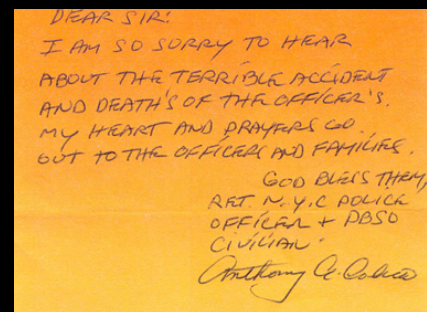 DEAR SIR:
I AM SO SORRY TO HEAR
ABOUT THE TERRIBLE ACCIDENT
AND DEATH'S OF THE OFFICER'S.
MY HEART AND PRAYERS GO
OUT TO THE OFFICERS AND FAMILIES.
GOD BLESS THEM,
RET. N.Y.C POLICE
OFFICER + PBSO
CIVILIAN.
Anthony